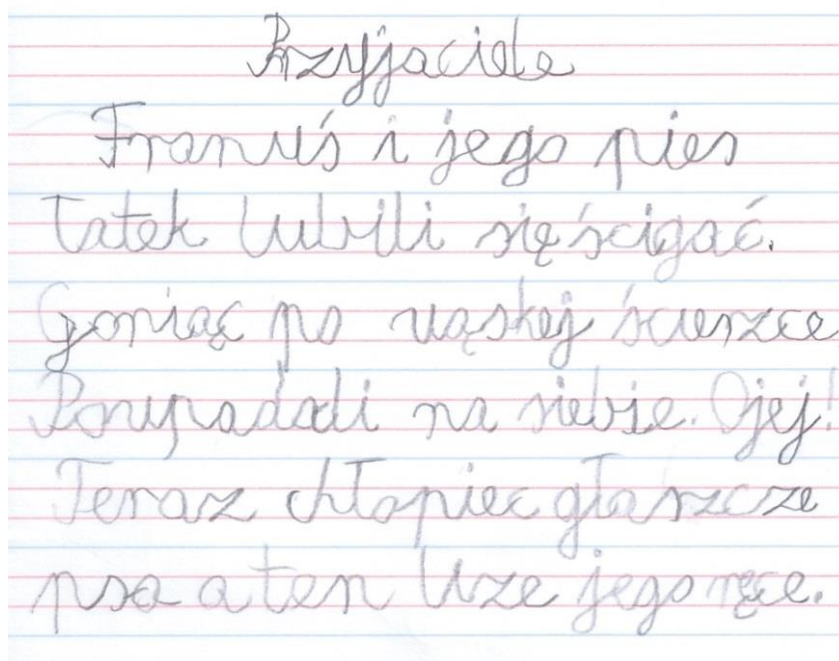 Przyjaciele
Franuś i jego pies
Łatek lubili się ścigać.
Goniąc po wąskej ścierzce
Powpadali na siebie. Ojej!
Teraz chłopiec głaszcze
psa a ten liże jego ręce.